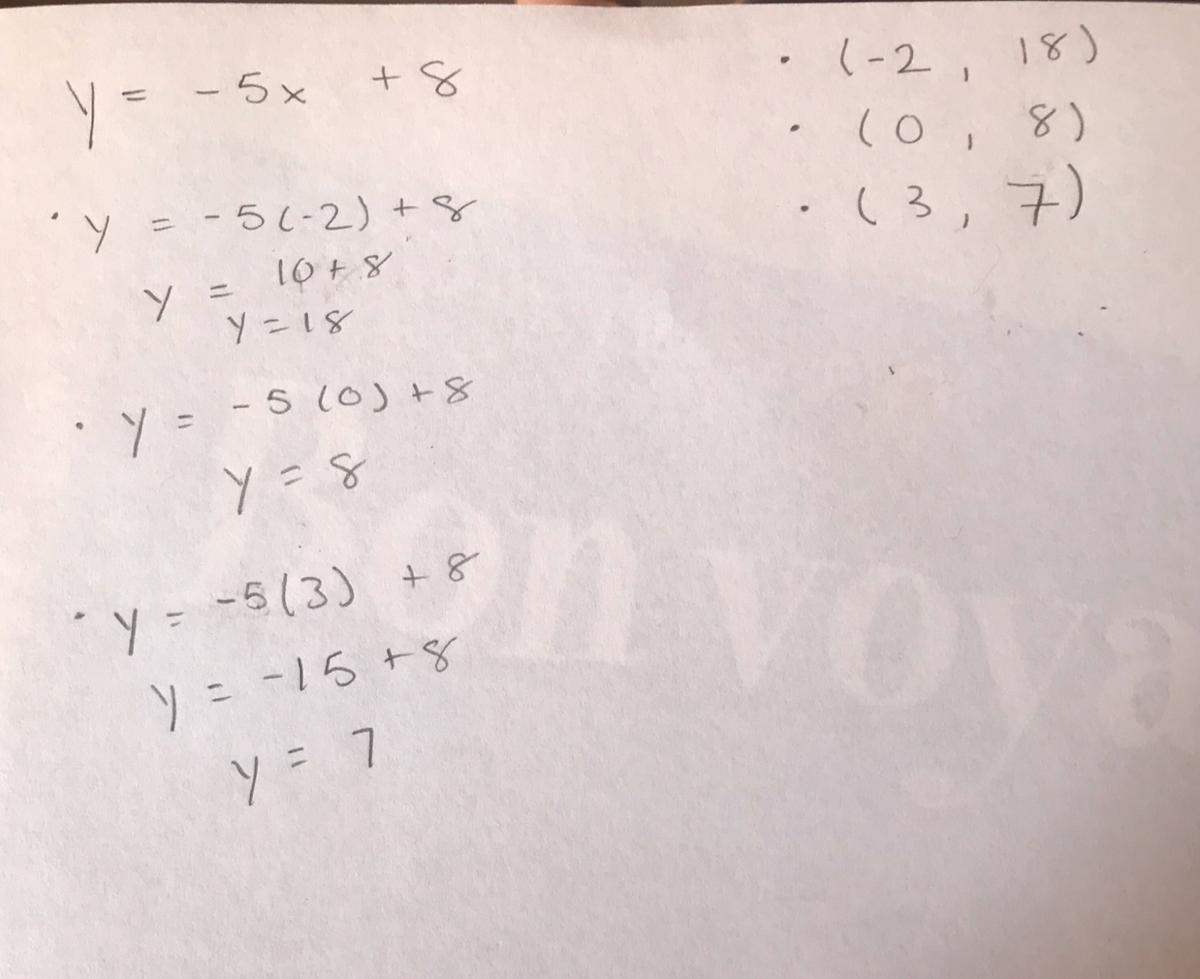 y = -5x + 8
· y = -5(-2) + 8
y = 10 + 8
y = 18
· y = -5(0) + 8
y = 8
· y = -5(3) + 8
y = -15 + 8
y = 7
· (-2, 18)
· (0, 8)
· (3, 7)
Bon voya